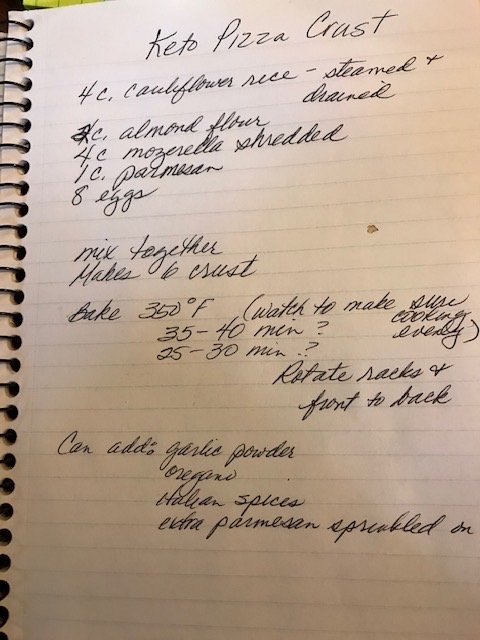 Keto Pizza Crust
4 c. cauliflower rice - steamed &
drained
c. almond flour
4 c mozerella shredded
1 c. parmesan
8 eggs
mix together
Makes 6 crust
Bake 350°F (watch to make sure
cooking
evenly)
35-40 min ?
25-30 min ??
Rotate racks &
front to back
Can add: garlic powder
oregano
Italian spices
extra parmesan sprinkled on